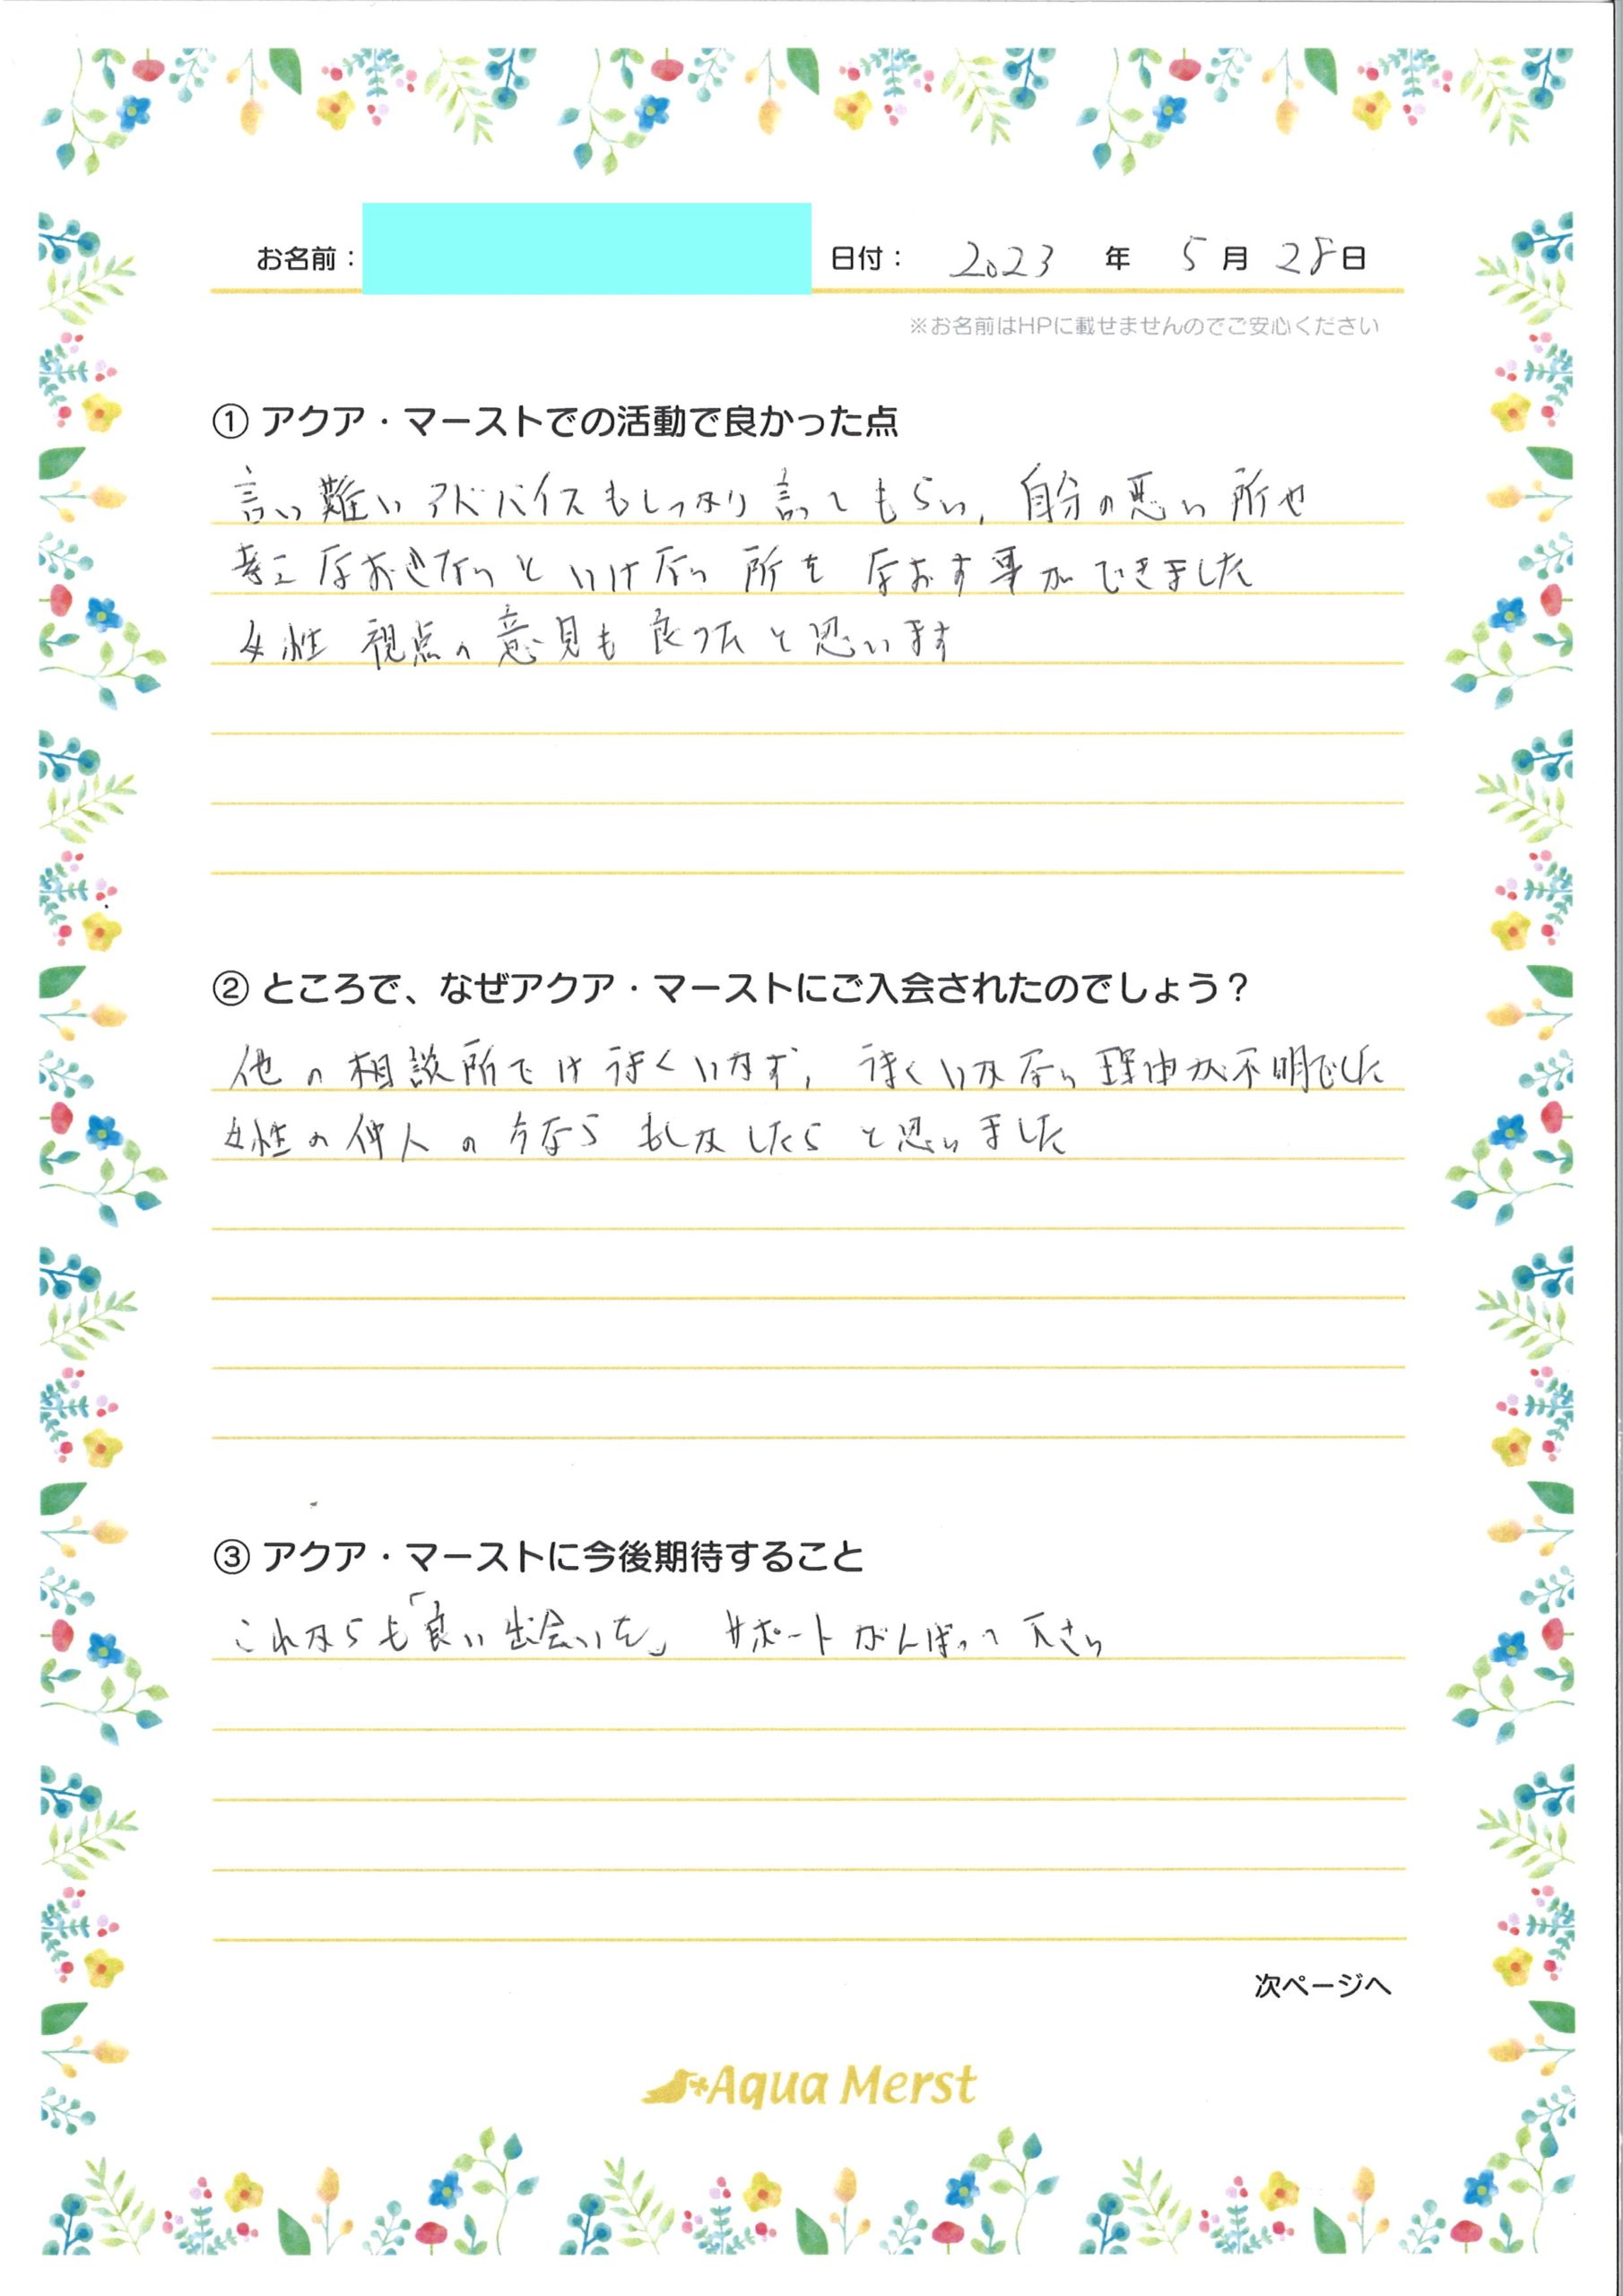 お名前： 日付： 2023 年 5 月 28 日
※お名前はHPに載せませんのでご安心ください
① アクア・マーストでの活動で良かった点
言い難いアドバイスもしっかり言ってもらい、自分の悪い所や
なおさないといけない所をなおす事ができました
女性視点の意見も良つたと思います
② ところで、なぜアクア・マーストにご入会されたのでしょう？
他の相談所では上手くいかず、上手くいかない理由が不明でした
女性の仲人の方なら もしかしたらと思いました
③ アクア・マーストに今後期待すること
これからも「良い出会いを」 サポートがんばって下さい
次ページへ
Aqua Merst